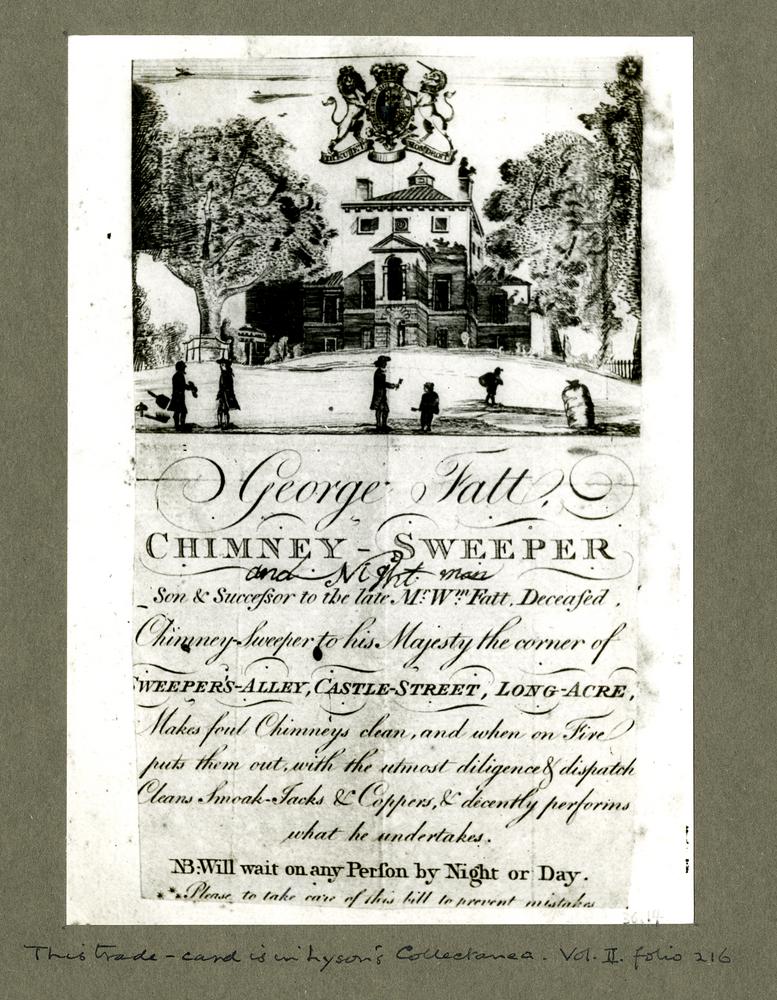 DIEU ET MON DROIT
George Fatt,
CHIMNEY-SWEEPER
and Night man
Son & Succeſsor to the late Mr. Wm. Fatt, Deceaſed,
Chimney-Sweeper to his Majesty the corner of
SWEEPER'S-ALLEY, CASTLE-STREET, LONG-ACRE,
Makes foul Chimneys clean, and when on Fire
puts them out, with the utmost diligence & dispatch
Cleans Smoak-Jacks & Coppers, & decently performs
what he undertakes.
NB: Will wait on any Perſon by Night or Day.
Please to take care of this bill to prevent mistakes
This trade-card is in Lyson's Collectanea. Vol. II. folio 216